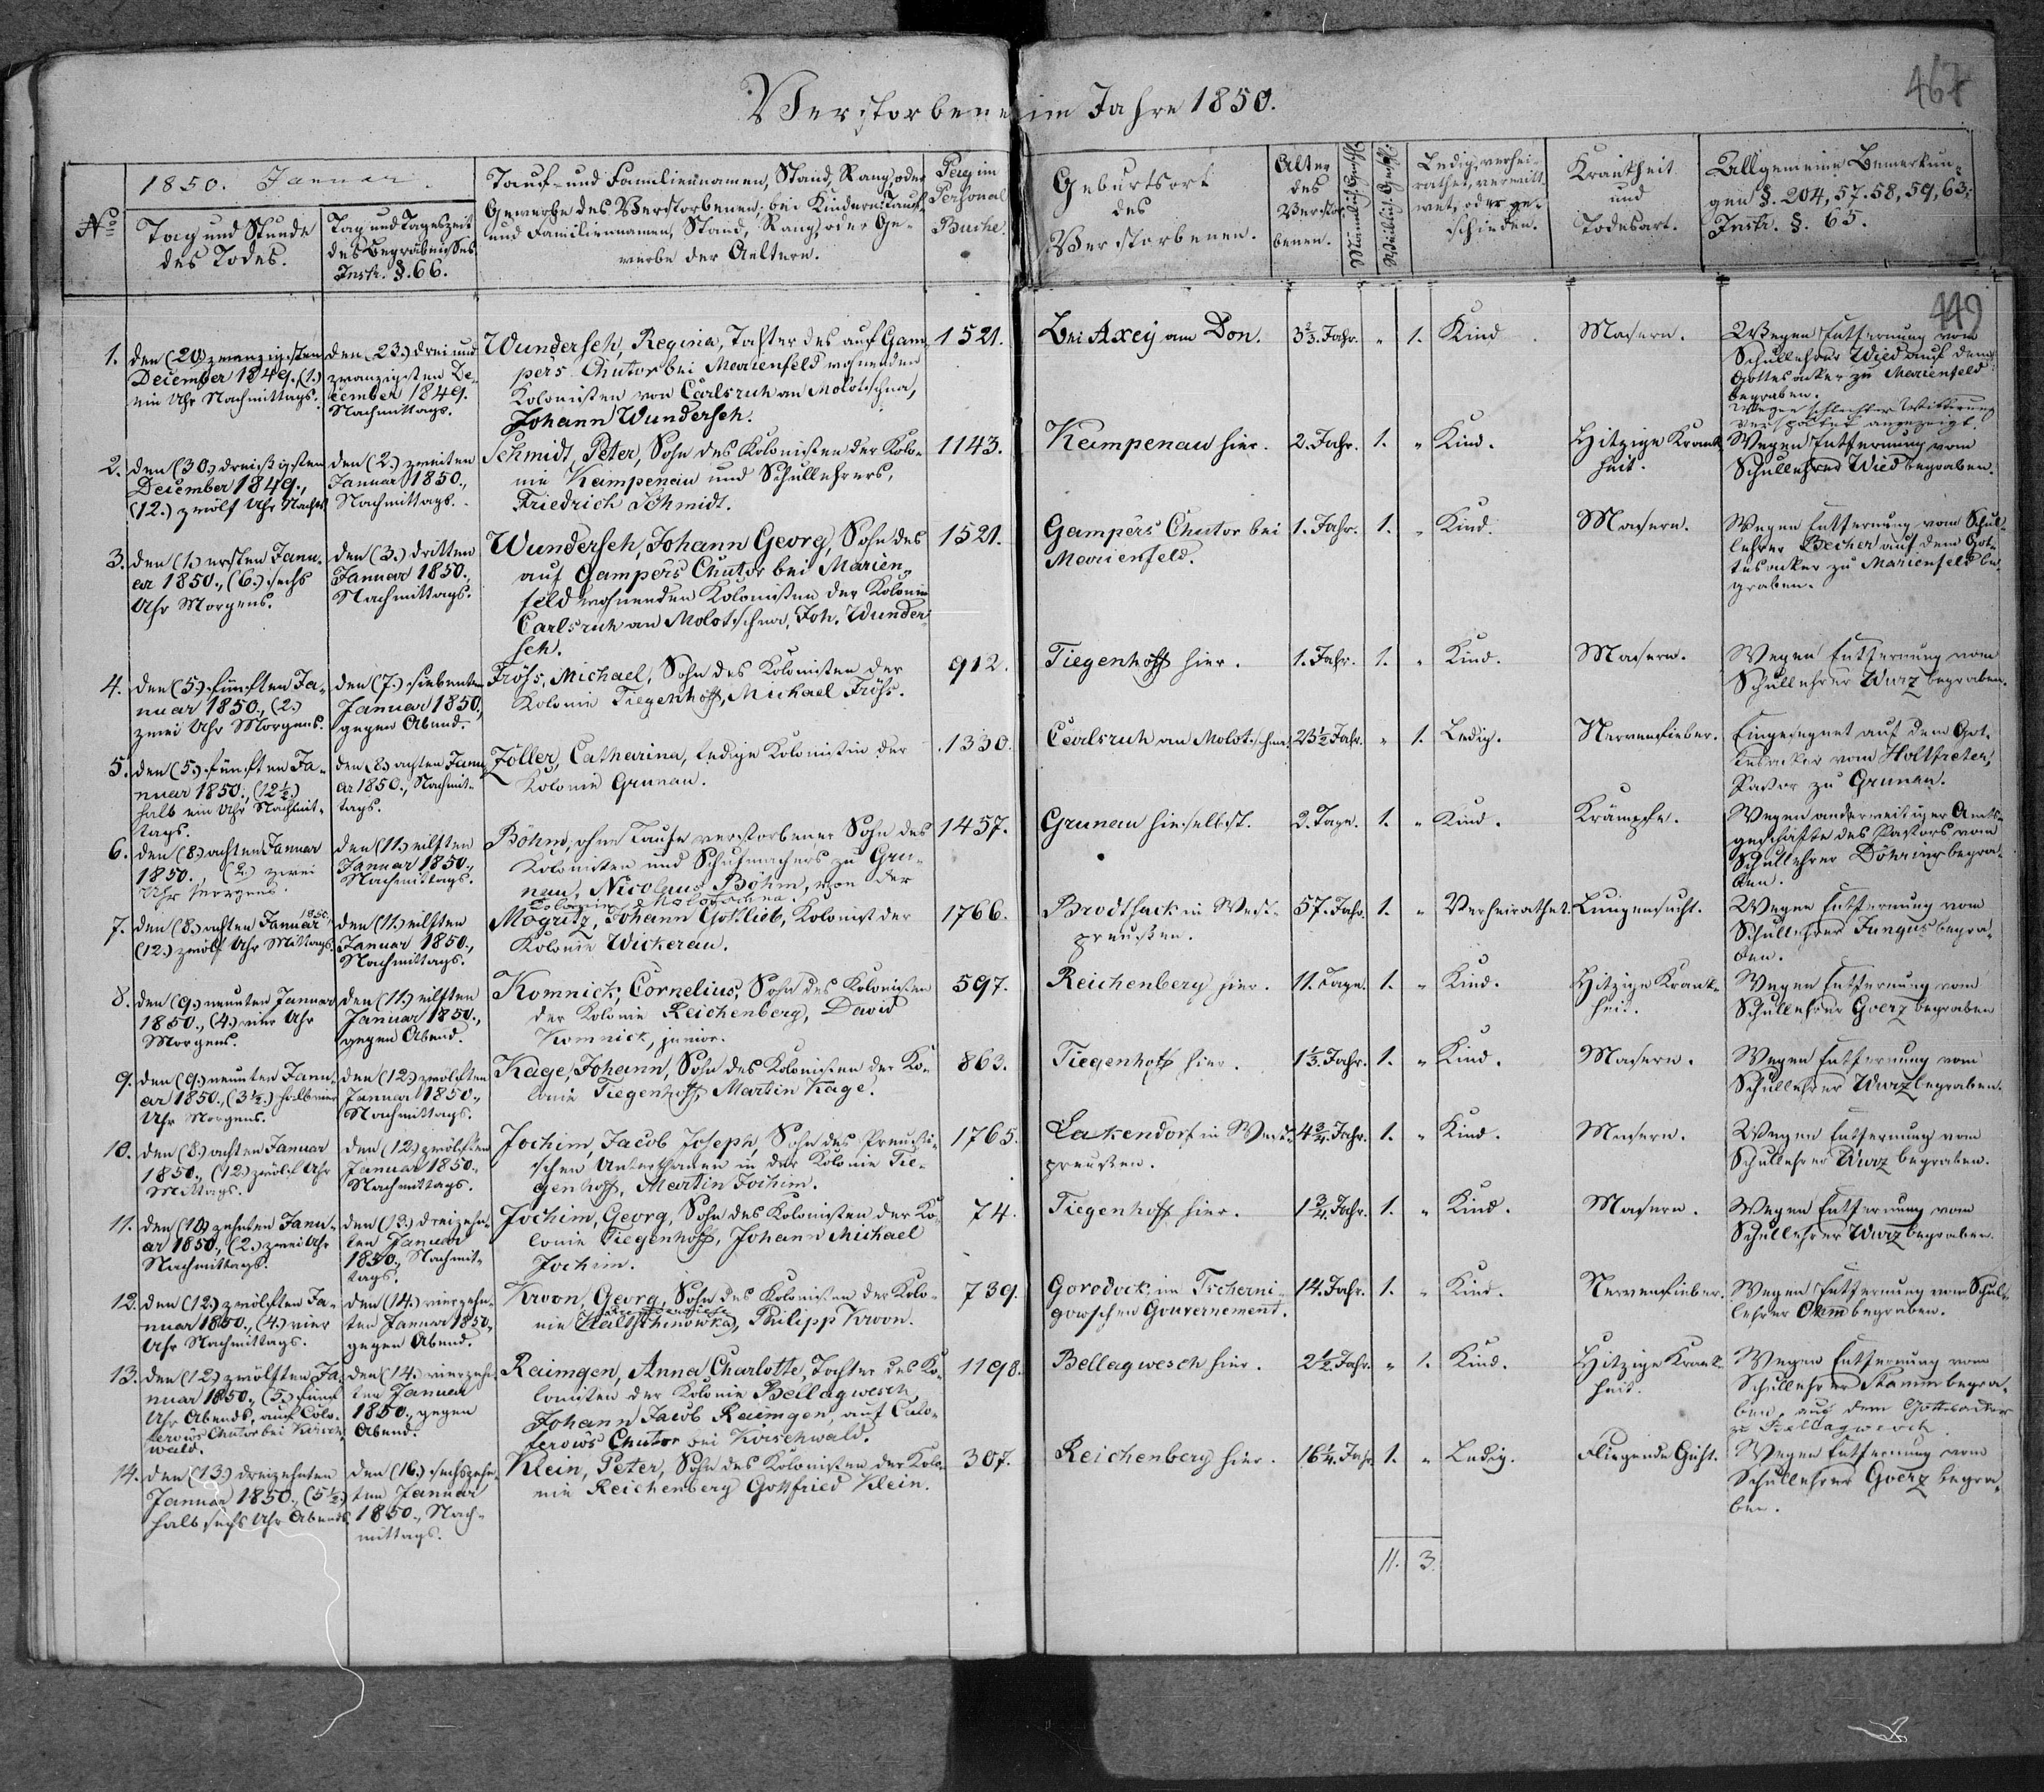 467
Verstorbene im Jahre 1850.
No
1850. Januar.
Tag und Stunde
des Todes.
Tag und Tageszeit
des Begräbnisses.
Instr. §. 66.
Tauf- und Familiennamen, Stand, Rang, oder
Gewerbe des Verstorbenen; bei Kindern Tauf-
und Familiennamen, Stand, Rang, oder Ge-
werbe der Aeltern.
Pag. im
Personal
Buche.
Geburtsort
des
Verstorbenen.
Alter
des
Verstor-
benen.
Männlich. Geschl.
Weiblich. Geschl.
Ledig, verhei-
rathet, verwitt-
wet, oder ge-
schieden.
Krankheit
und
Todesart.
Allgemeine Bemerkun-
gen §. 204, 57. 58, 59, 63;
Instr. §. 65.
449
1.
den (20.) zwanzigsten
December 1849., (1.)
ein Uhr Nachmittags.
den (23.) drei und
zwanzigsten De-
cember 1849.
Nachmittags.
Wundersch, Regina, Tochter des auf Gam-
pers Chutor bei Marienfeld wohnenden
Kolonisten von Carlsruh an Molotschna,
Johann Wundersch.
1521.
Bei Axey am Don.
3 2/3. Jahr.
"
1.
Kind
Masern.
Wegen Entfernung vom
Schullehrer Wied auf dem
Gottesacker zu Marienfeld
begraben.
Wegen schlechter Witterung
verspätet angezeigt.
2.
den (30.) dreißigsten
December 1849.,
(12.) zwölf Uhr Nachts
den (2.) zweiten
Januar 1850.,
Nachmittags.
Schmidt, Peter, Sohn des Kolonisten der Kolo-
nie Kampenau und Schullehrers,
Friedrich Schmidt.
1143.
Kampenau hier.
2. Jahr.
1.
"
Kind.
Hitzige Krank-
heit.
Wegen Entfernung vom
Schullehrer Wied begraben.
3.
den (1.) ersten Janu-
ar 1850., (6.) sechs
Uhr Morgens.
den (3.) dritten
Januar 1850.,
Nachmittags.
Wundersch, Johann Georg, Sohn des
auf Gampers Chutor bei Marien-
feld wohnenden Kolonisten der Kolonie
Carlsruh an Molotschna, Joh. Wunder-
sch.
1521.
Gampers Chutor bei
Marienfeld.
1. Jahr.
1.
"
Kind.
Masern.
Wegen Entfernung vom Schul-
lehrer Becher auf dem Got-
tesacker zu Marienfeld be-
graben.
4.
den (5.) fünften Ja-
nuar 1850., (2.)
zwei Uhr Morgens.
den (7.) siebenten
Januar 1850.,
gegen Abend.
Fröhs, Michael, Sohn des Kolonisten der
Kolonie Tiegenhoff, Michael Fröhs.
912.
Tiegenhoff hier.
1. Jahr.
1.
"
Kind.
Masern.
Wegen Entfernung vom
Schullehrer Wurz begraben.
5.
den (5.) fünften Ja-
nuar 1850., (12 1/2.)
halb ein Uhr Nachmit-
tags.
den (8.) achten Janu-
ar 1850., Nachmit-
tags.
Zoller, Catharina, ledige Kolonistin der
Kolonie Grunau.
1330.
Carlsruh an Molotschna.
23 1/2 Jahr.
"
1.
Ledig.
Nervenfieber.
Eingesegnet auf dem Got-
tesacker vom Holtfreter,
Pastor zu Grunau.
6.
den (8.) achten Januar
1850., (2.) zwei
Uhr Morgens.
den (11.) eilften
Januar 1850.,
Nachmittags.
Böhm, ohne Taufe verstorbener Sohn des
Kolonisten und Schuhmachers zu Gru-
nau, Nicolaus Böhm, von der
Kolonie Molotschna.
1457.
Grunau hieselbst.
2. Tage.
1.
"
Kind.
Krämpfe.
Wegen anderweitiger Amts-
geschäfte des Pastors vom
Schullehrer Döhring begra-
ben.
7.
den (8.) achten Januar 1850.
(12.) zwölf Uhr Mittags.
den (11.) eilften
Januar 1850.,
Nachmittags.
Mogritz, Johann Gottlieb, Kolonist der
Kolonie Wickerau.
1766.
Brodsack in West-
preußen.
57. Jahr.
1.
"
Verheirathet.
Lungensucht.
Wegen Entfernung vom
Schullehrer Jungus begra-
ben.
8.
den (9.) neunten Januar
1850., (4.) vier Uhr
Morgens.
den (11.) eilften
Januar 1850.,
gegen Abend.
Komnick, Cornelius, Sohn des Kolonisten
der Kolonie Reichenberg, David
Komnick, junior.
597.
Reichenberg hier.
11. Tage.
1.
"
Kind.
Hitzige Krank-
heit.
Wegen Entfernung vom
Schullehrer Goerz begraben
9.
den (9.) neunten Janu-
ar 1850., (3 1/2.) halb vier
Uhr Morgens.
den (12.) zwölften
Januar 1850.,
Nachmittags.
Kage, Johann, Sohn des Kolonisten der Ko-
lonie Tiegenhoff, Martin Kage.
863.
Tiegenhoff hier.
1 1/3. Jahr.
1.
"
Kind.
Masern.
Wegen Entfernung vom
Schullehrer Wurz begraben.
10.
den (8.) achten Januar
1850., (12.) zwölf Uhr
Mittags.
den (12.) zwölften
Januar 1850.,
Nachmittags.
Jochim, Jacob Joseph, Sohn des Preußi-
schen Unterthanen in der Kolonie Tie-
genhoff, Martin Jochim.
1765.
Lakendorf in West-
preußen.
4 3/4. Jahr.
1.
"
Kind.
Masern.
Wegen Entfernung vom
Schullehrer Wurz begraben.
11.
den (10.) zehnten Janu-
ar 1850., (2.) zwei Uhr
Nachmittags.
den (13.) dreizehn-
ten Januar
1850., Nachmit-
tags.
Jochim, Georg, Sohn des Kolonisten der Ko-
lonie Tiegenhoff, Johann Michael
Jochim.
74.
Tiegenhoff hier.
1 3/4. Jahr.
1.
"
Kind.
Masern.
Wegen Entfernung vom
Schullehrer Wurz begraben.
12.
den (12.) zwölften Ja-
nuar 1850., (4.) vier
Uhr Nachmittags.
den (14.) vierzehn-
ten Januar 1850.,
gegen Abend.
Kroon, Georg, Sohn des Kolonisten der Kolo-
nie Kaltschinowka, Philipp Kroon.
739.
Gorodock im Tscherni-
gowschen Gouvernement.
14. Jahr.
1.
"
Kind.
Nervenfieber.
Wegen Entfernung vom Schul-
lehrer Ohm begraben.
13.
den (12.) zwölften Ja-
nuar 1850., (5.) fünf
Uhr Abends, auf Colo-
ferows Chutor bei Kirsch-
wald.
den (14.) vierzehn-
ten Januar
1850., gegen
Abend.
Raimgen, Anna Charlotte, Tochter des Ko-
lonisten der Kolonie Bellagwesch,
Johann Jacob Raimgen, auf Colo-
ferows Chutor bei Kirschwald.
1198.
Bellagwesch hier.
2 1/2. Jahr.
"
1.
Kind.
Hitzige Krank-
heit.
Wegen Entfernung vom
Schullehrer Stamm begra-
ben, auf dem Gottesacker
zu Bellagwesch.
14.
den (13.) dreizehnten
Januar 1850., (5 1/2.)
halb sechs Uhr Abends.
den (16.) sechszehn-
ten Januar
1850., Nach-
mittags.
Klein, Peter, Sohn des Kolonisten der Kolo-
nie Reichenberg Gottfried Klein.
307.
Reichenberg hier.
16 1/4. Jahr
1.
"
Ledig.
Fliegende Gicht.
Wegen Entfernung vom
Schullehrer Goerz begra-
ben.
11.
3.